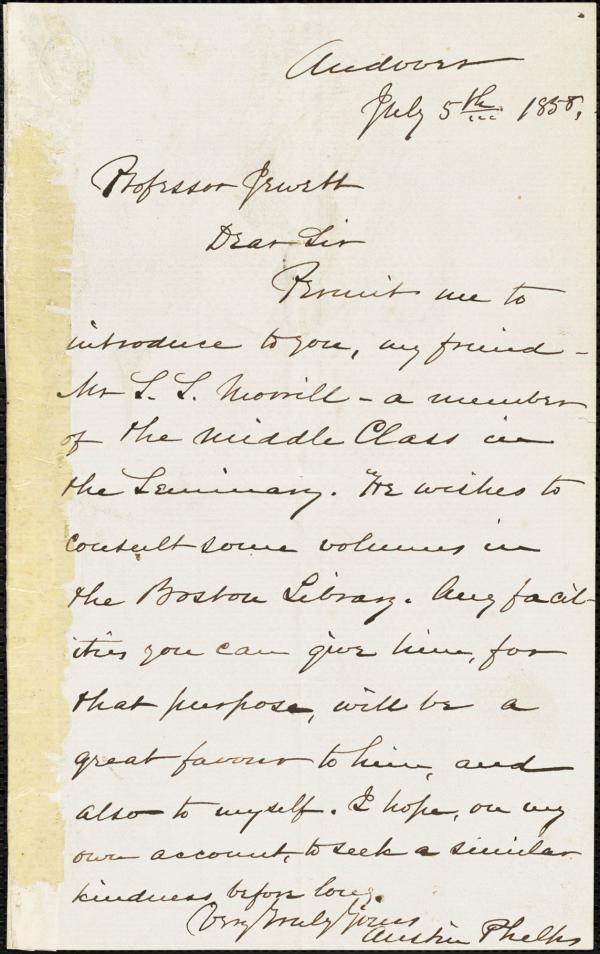 Andover
July 5th 1858,
Professor Jewett
Dear Sir
Permit me to
introduce to you, my friend -
Mr S. S. Morrill - a member
of the Middle Class in
the Seminary. He wishes to
consult some volumes in
the Boston Library. Any facil-
ities you can give him, for
that purpose, will be a
great favour to him, and
also to myself. I hope, on my
own account, to seek a similar
kindness before long.
Very Truly Yours
Austin Phelps